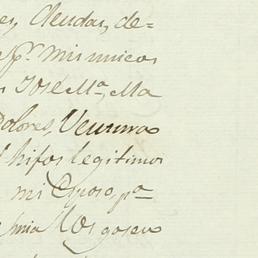 es, Deudas, de=
pr. mis unicos
José Ma., Ma
Dolores, Ventura
hijos legitimos
mi Esposo, pa
mia los gosen